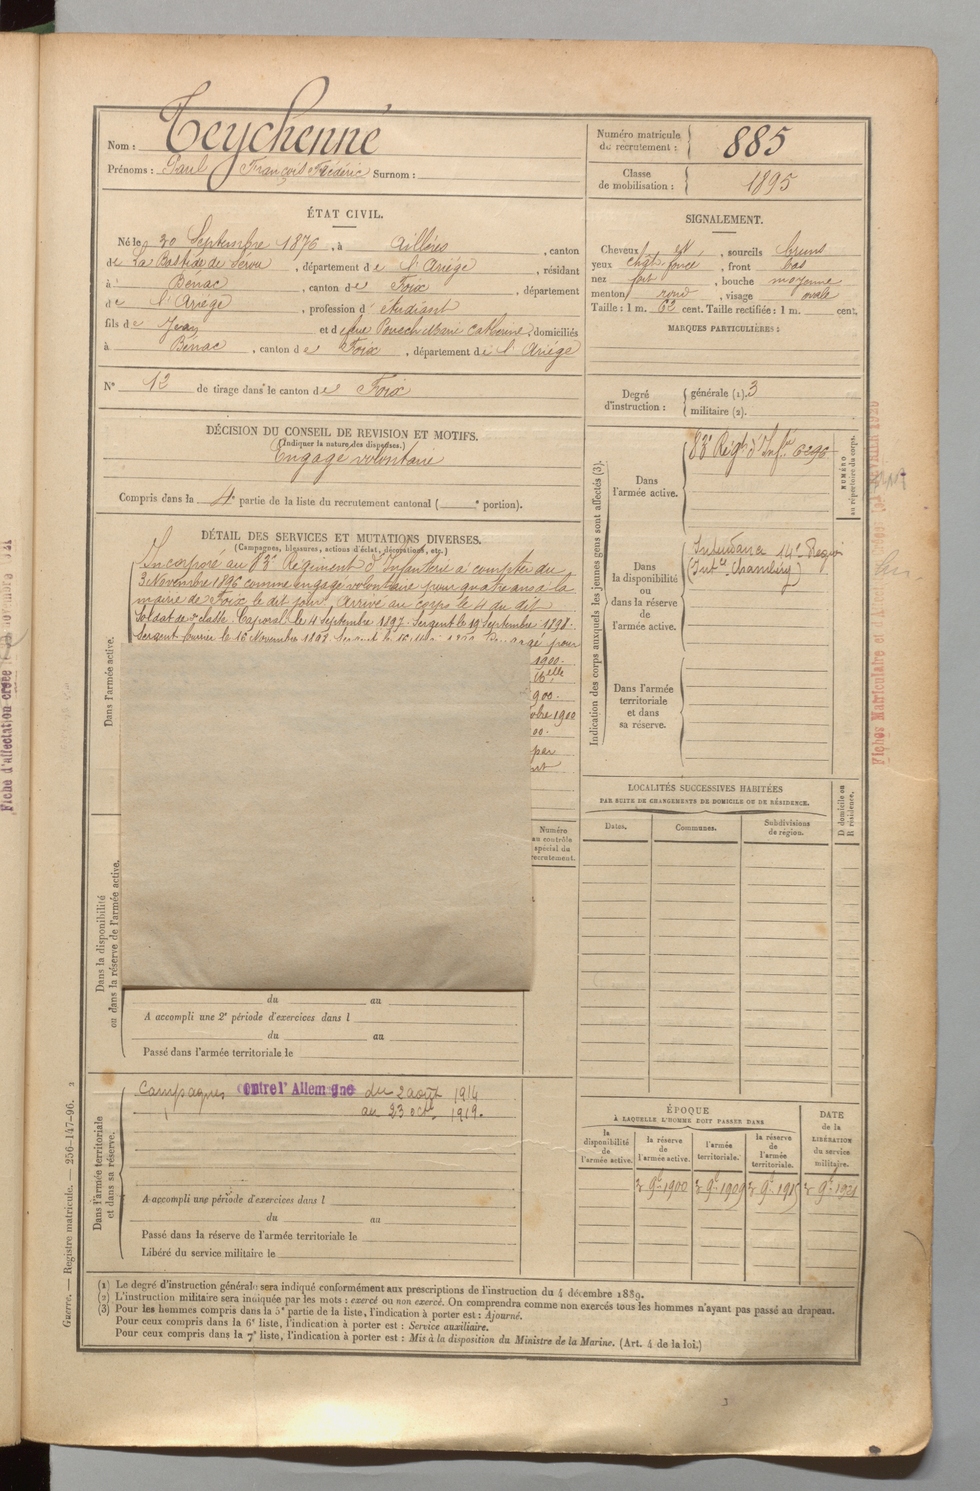 Nom : Teychenné
Prénoms : Paul François Frédéric Surnom :
Numéro matricule du recrutement : 885
Classe de mobilisation : 1895
ÉTAT CIVIL.
Né le 30 Septembre 1876, à Aillères, canton
de La Bastide de Sérou, département de l'Ariége, résidant
à Benac, canton de Foix, département
de l'Ariége, profession d'étudiant
fils de Jean et de Marie Catherine, domiciliés
à Bénac, canton de Foix, département de l'Ariége
N° 12 de tirage dans le canton de Foix
DÉCISION DU CONSEIL DE REVISION ET MOTIFS.
(Indiquer la nature des dispenses.)
Engagé volontaire
Compris dans la 4e partie de la liste du recrutement cantonal ( e portion).
DÉTAIL DES SERVICES ET MUTATIONS DIVERSES.
(Campagnes, blessures, actions d'éclat, décorations, etc.)
Incorporé au 83e Régiment d'Infanterie à compter du
3 Novembre 1896 comme engagé volontaire pour quatre ans à la
mairie de Foix, le dit jour. Arrivé au corps le 4 du dit
Soldat de 2e classe. Caporal le 4 Septembre 1897. Sergent le 19 Septembre 1898.
Sergent fourrier le 16 Novembre 1898. Sergent le
1900.
900.
obre 1900
00.
par
Numéro
au contrôle
spécial du
recrutement.
Dans l'armée active.
Dans la disponibilité
ou dans la réserve de l'armée active.
du au
A accompli une 2e période d'exercices dans l
du au
Passé dans l'armée territoriale le
Dans l'armée territoriale
et dans sa réserve.
Campagnes Contre l'Allemagne du 2 août 1914
au 23 oct 1919.
A accompli une période d'exercices dans l
du au
Passé dans la réserve de l'armée territoriale le
Libéré du service militaire le
SIGNALEMENT.
Cheveux et, sourcils bruns
yeux chât. foncé, front bas
nez fort, bouche moyenne
menton rond, visage ovale
Taille : 1 m. 63 cent. Taille rectifiée : 1 m. cent.
MARQUES PARTICULIÈRES :
Degré d'instruction : générale (1). 3
militaire (2).
Indication des corps auxquels les jeunes gens sont affectés (3).
NUMÉRO
au répertoire du corps.
Dans
l'armée active.
83e Régt d'Infie 6296
Dans
la disponibilité
ou
dans la réserve
de
l'armée active.
Intendance 14e Region
(Intce Chambéry)
Dans l'armée
territoriale
et dans
sa réserve.
LOCALITÉS SUCCESSIVES HABITÉES
PAR SUITE DE CHANGEMENTS DE DOMICILE OU DE RÉSIDENCE.
Dates.
Communes.
Subdivisions
de région.
D domicile ou
R résidence.
ÉPOQUE
À LAQUELLE L'HOMME DOIT PASSER DANS
la
disponibilité
de
l'armée active.
la réserve
de
l'armée active.
l'armée
territoriale.
la réserve
de
l'armée
territoriale.
DATE
de la
LIBÉRATION
du service
militaire.
3 9e 1900
3 9e 1909
3 9e 1915
3 9e 1921
(1) Le degré d'instruction générale sera indiqué conformément aux prescriptions de l'instruction du 4 décembre 1889.
(2) L'instruction militaire sera indiquée par les mots : exercé ou non exercé. On comprendra comme non exercés tous les hommes n'ayant pas passé au drapeau.
(3) Pour les hommes compris dans la 5e partie de la liste, l'indication à porter est : Ajourné.
Pour ceux compris dans la 6e liste, l'indication à porter est : Service auxiliaire.
Pour ceux compris dans la 7e liste, l'indication à porter est : Mis à la disposition du Ministre de la Marine. (Art. 4 de la loi.)
Guerre. — Registre matricule. — 256-147-96. 2